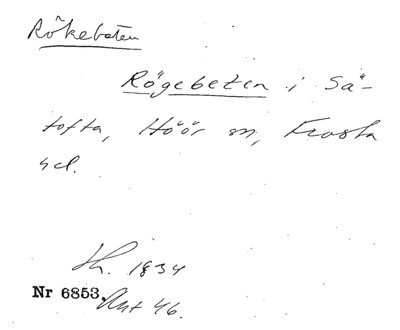 Rökebeten
Rögebeten i Sä-
tofta, Höör sn, Frosta
hd.
Sk. 1834
Nr 6853. Ant 46.